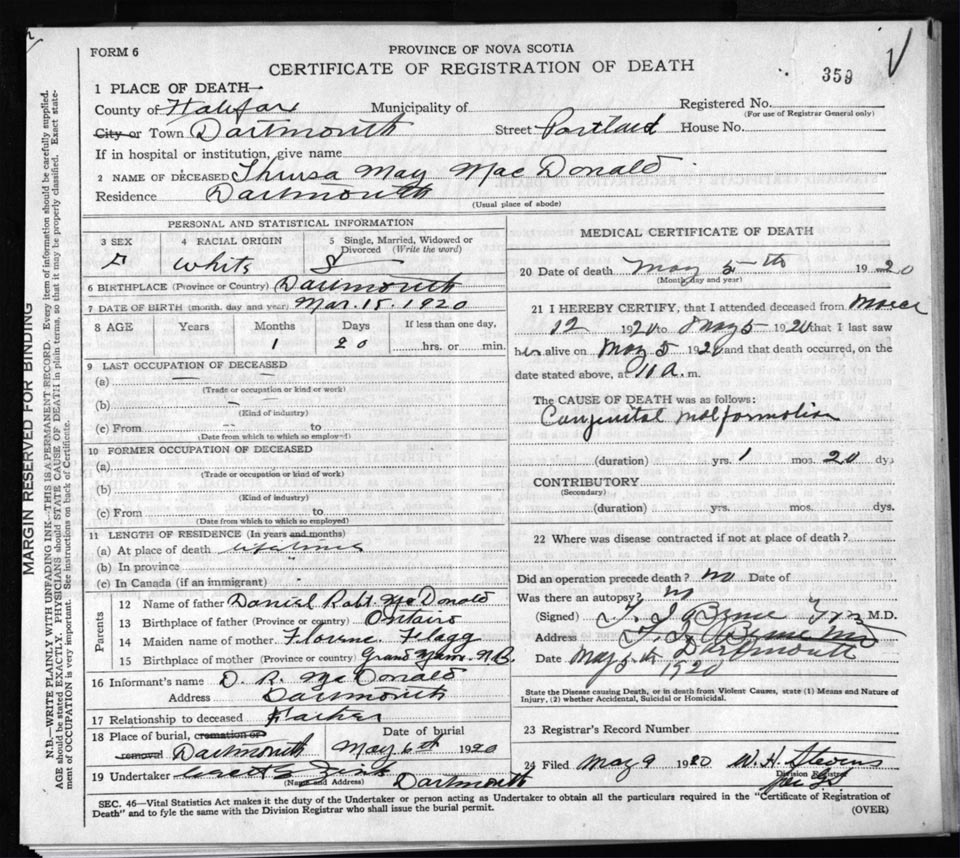 FORM 6
PROVINCE OF NOVA SCOTIA
CERTIFICATE OF REGISTRATION OF DEATH
359
1 PLACE OF DEATH
County of Halifax Municipality of Registered No.
(For use of Registrar General only)
City or Town Dartmouth Street Portland House No.
If in hospital or institution, give name
2 NAME OF DECEASED Thursa May MacDonald
Residence Dartmouth
(Usual place of abode)
PERSONAL AND STATISTICAL INFORMATION
3 SEX 4 RACIAL ORIGIN 5 Single, Married, Widowed or Divorced (Write the word)
F White S
6 BIRTHPLACE (Province or Country) Dartmouth
7 DATE OF BIRTH (month, day and year) Mar. 15. 1920
8 AGE Years Months Days If less than one day,
1 20 hrs. or min.
9 LAST OCCUPATION OF DECEASED
(a)
(Trade or occupation or kind or work)
(b)
(Kind of industry)
(c) From to
(Date from which to which so employed)
10 FORMER OCCUPATION OF DECEASED
(a)
(Trade or occupation or kind of work)
(b)
(Kind of industry)
(c) From to
(Date from which to which so employed)
11 LENGTH OF RESIDENCE (In years and months)
(a) At place of death life time
(b) In province "
(c) In Canada (if an immigrant)
Parents
12 Name of father Daniel Robt. McDonald
13 Birthplace of father (Province or country) Ontairo
14 Maiden name of mother Florine Flagg
15 Birthplace of mother (Province or country) Grand Manan N.B.
16 Informant's name D. R. McDonald
Address Dartmouth
17 Relationship to deceased Father
18 Place of burial, cremation or removal Dartmouth
Date of burial May 6th 1920
19 Undertaker Dartmouth
(Name and Address)
MEDICAL CERTIFICATE OF DEATH
20 Date of death May 5th 1920
(Month, day and year)
21 I HEREBY CERTIFY, that I attended deceased from March
12 1920 to May 5 1920 that I last saw
her alive on May 5 1920 and that death occurred, on the
date stated above, at 11 a. m.
The CAUSE OF DEATH was as follows:
Congenital malformation
(duration) yrs. 1 mos. 20 dys
CONTRIBUTORY
(Secondary)
(duration) yrs. mos. dys.
22 Where was disease contracted if not at place of death?
Did an operation precede death? no Date of
Was there an autopsy? no
(Signed) M.D.
Address Dartmouth
Date May 5th 1920
State the Disease causing Death, or in death from Violent Causes, state (1) Means and Nature of
Injury, (2) whether Accidental, Suicidal or Homicidal.
23 Registrar's Record Number
24 Filed May 9 1920 W. H. Stevens
Division Registrar
SEC. 46—Vital Statistics Act makes it the duty of the Undertaker or person acting as Undertaker to obtain all the particulars required in the "Certificate of Registration of
Death" and to fyle the same with the Division Registrar who shall issue the burial permit.
(OVER)
MARGIN RESERVED FOR BINDING
N.B.—WRITE PLAINLY WITH UNFADING INK—THIS IS A PERMANENT RECORD. Every item of information should be carefully supplied.
AGE should be stated EXACTLY. PHYSICIANS should STATE CAUSE OF DEATH in plain terms, so that it may be properly classified. Exact state-
ment of OCCUPATION is very important. See instructions on back of Certificate.